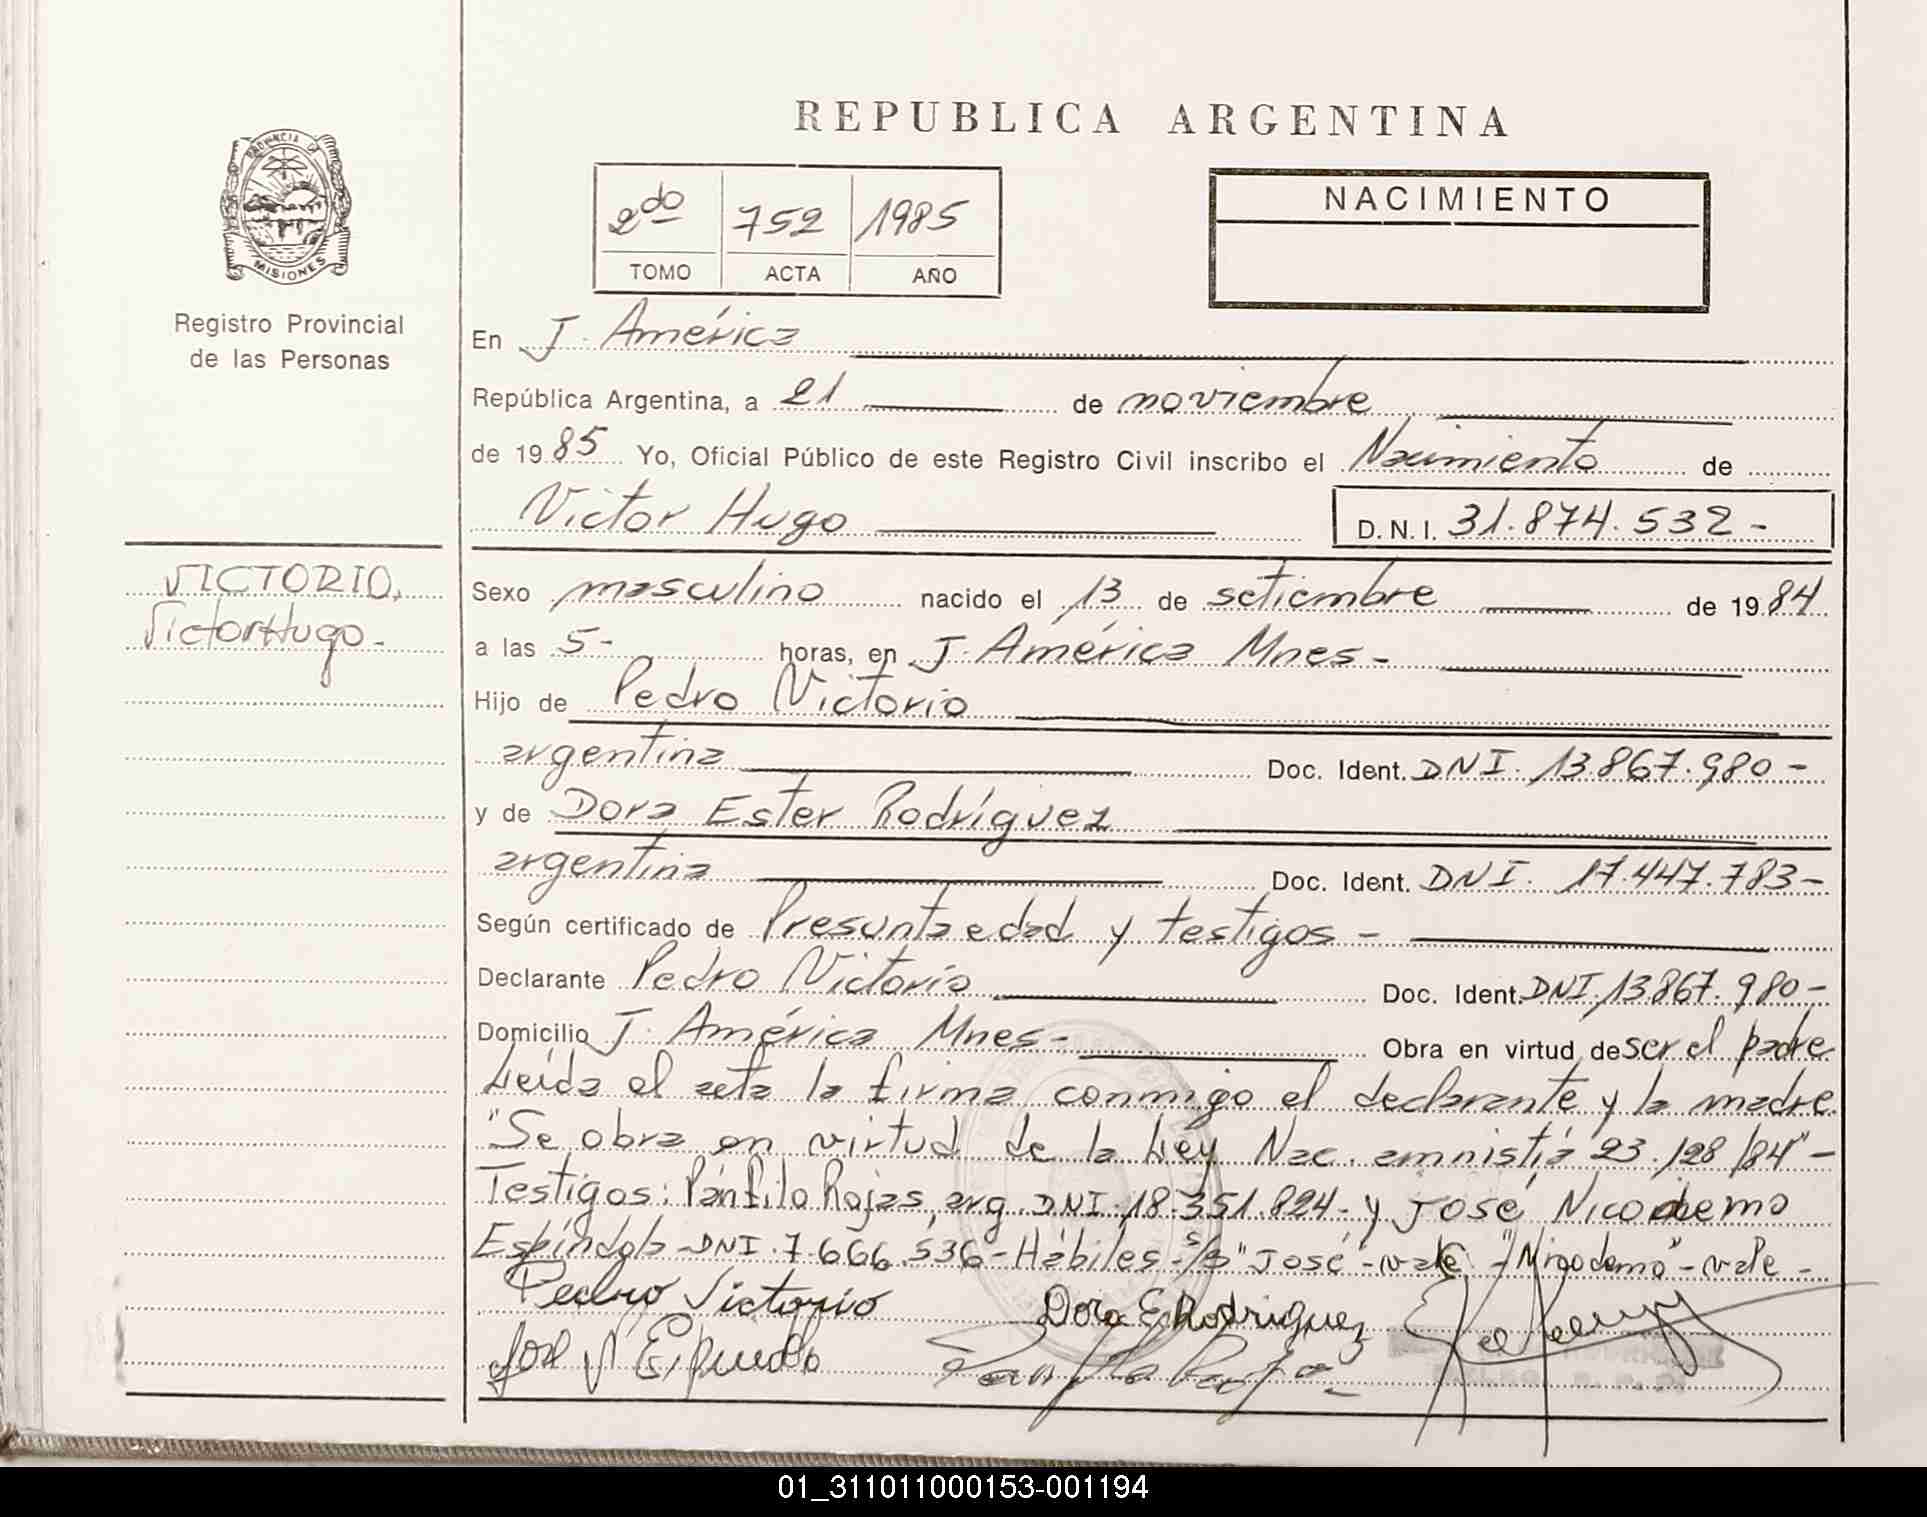 REPUBLICA ARGENTINA
PROVINCIA DE
MISIONES
Registro Provincial
de las Personas
2do 752 1985
TOMO ACTA AÑO
NACIMIENTO
En J. América
República Argentina, a 21 de noviembre
de 1985 Yo, Oficial Público de este Registro Civil inscribo el Nacimiento de
Victor Hugo D.N.I. 31.874.532-
VICTORIO,
Victor Hugo-
Sexo masculino nacido el 13 de setiembre de 1984
a las 5- horas, en J. América Mnes-
Hijo de Pedro Victorio
argentina Doc. Ident. DNI. 13.867.980-
y de Dora Ester Rodríguez
argentina Doc. Ident. DNI. 17.447.783-
Según certificado de Presunta edad y testigos-
Declarante Pedro Victorio Doc. Ident. DNI. 13.867.980-
Domicilio J. América Mnes- Obra en virtud de ser el padre
Leída el acta la firma conmigo el declarante y la madre.
"Se obra en virtud de la Ley Nac. amnistía 23.128/84"-
Testigos: Pánfilo Rojas, arg. DNI. 18.351.824- y José Nicodemo
Espíndola-DNI. 7.666.536-Hábiles-s/s "José"-vale-"Nicodemo"-vale-
Pedro Victorio Dora E Rodriguez
José N Espindola
01_311011000153-001194